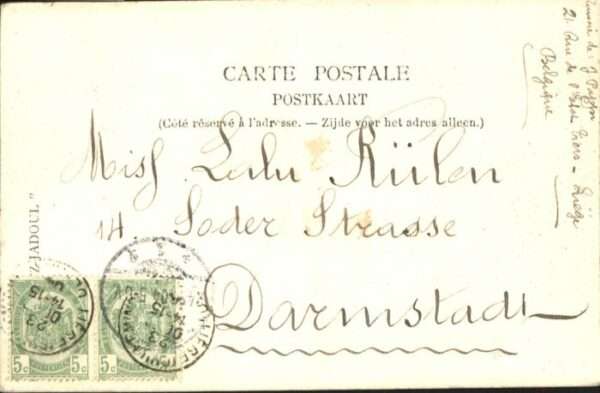 CARTE POSTALE
POSTKAART
(Côté réservé à l'adresse. — Zijde voor het adres alleen.)
Miss Lulu Rülen
14. Soder Strasse
Darmstadt
de J
21. Rue de l'Etat Tiers - Liège
Belgique
Z-JADOUL"
5c 5c 5c